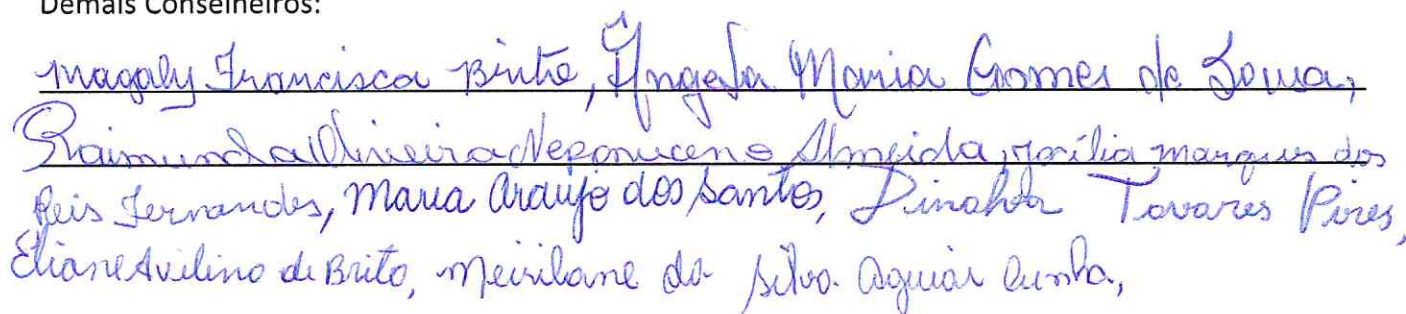 Demais Conselheiros:
Magaly Francisca Pinto, Ângela Maria Gomes de Sousa,
Raimunda Oliveira Nepomuceno Almeida, Marília Marques dos
Reis Fernandes, Maria Araujo dos Santos, Dinahra Tavares Pires,
Eliane Avelino de Brito, Meirilane da Silva Aguiar Cunha,